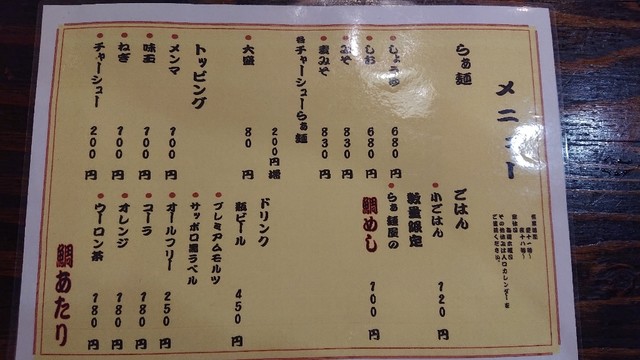 メニュー
らぁ麺
しょうゆ 680円
しお 680円
みそ 830円
麦みそ 830円
各チャーシューらぁ麺 200円増
大盛 80円
トッピング
メンマ 100円
味玉 100円
ねぎ 100円
チャーシュー 200円
ごはん
小ごはん 120円
数量限定
らぁ麺屋の
鯛めし 100円
ドリンク
瓶ビール 450円
プレミアムモルツ
サッポロ黒ラベル
オールフリー 250円
コーラ 180円
オレンジ 180円
ウーロン茶 180円
鯛あたり